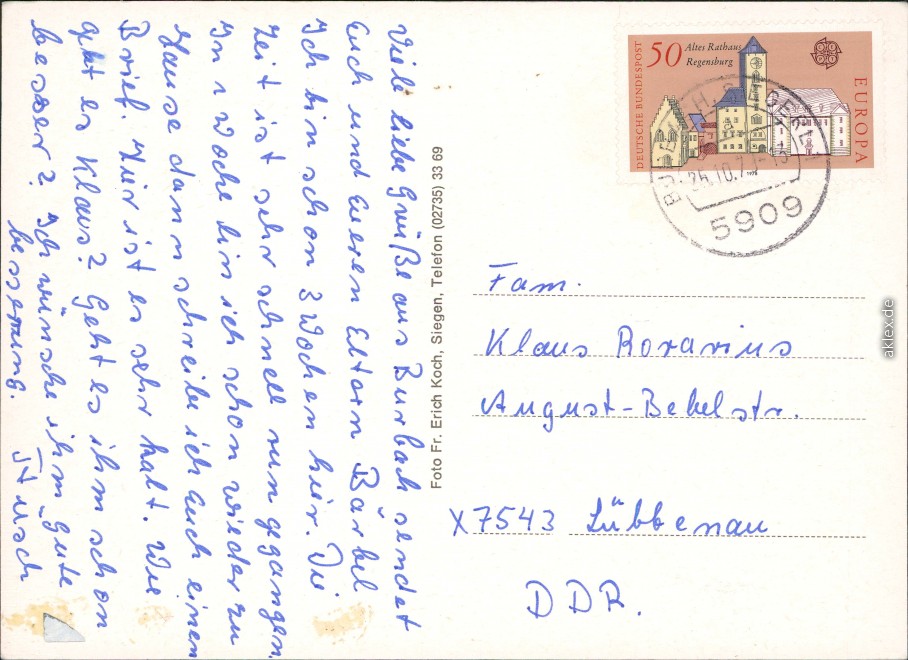 Viele liebe Grüße aus Burbach sendet
Euch und Eueren Eltern Bärbel
Ich bin schon 3 Wochen hier. Die
Zeit ist sehr schnell rum gegangen.
In 1 Woche bin ich schon wieder zu
Hause dann schreibe ich Euch einen
Brief. Hier ist es sehr kalt. Wie
geht es Klaus? Geht es ihm schon
besser? Ich wünsche ihm gute
besserung.
Foto Fr. Erich Koch, Siegen, Telefon (02735) 33 69
DEUTSCHE BUNDESPOST
50 Altes Rathaus
Regensburg
EUROPA
5909
Fam.
Klaus Rorarius
August-Bebelstr.
X7543 Lübbenau
DDR.
aklex.de